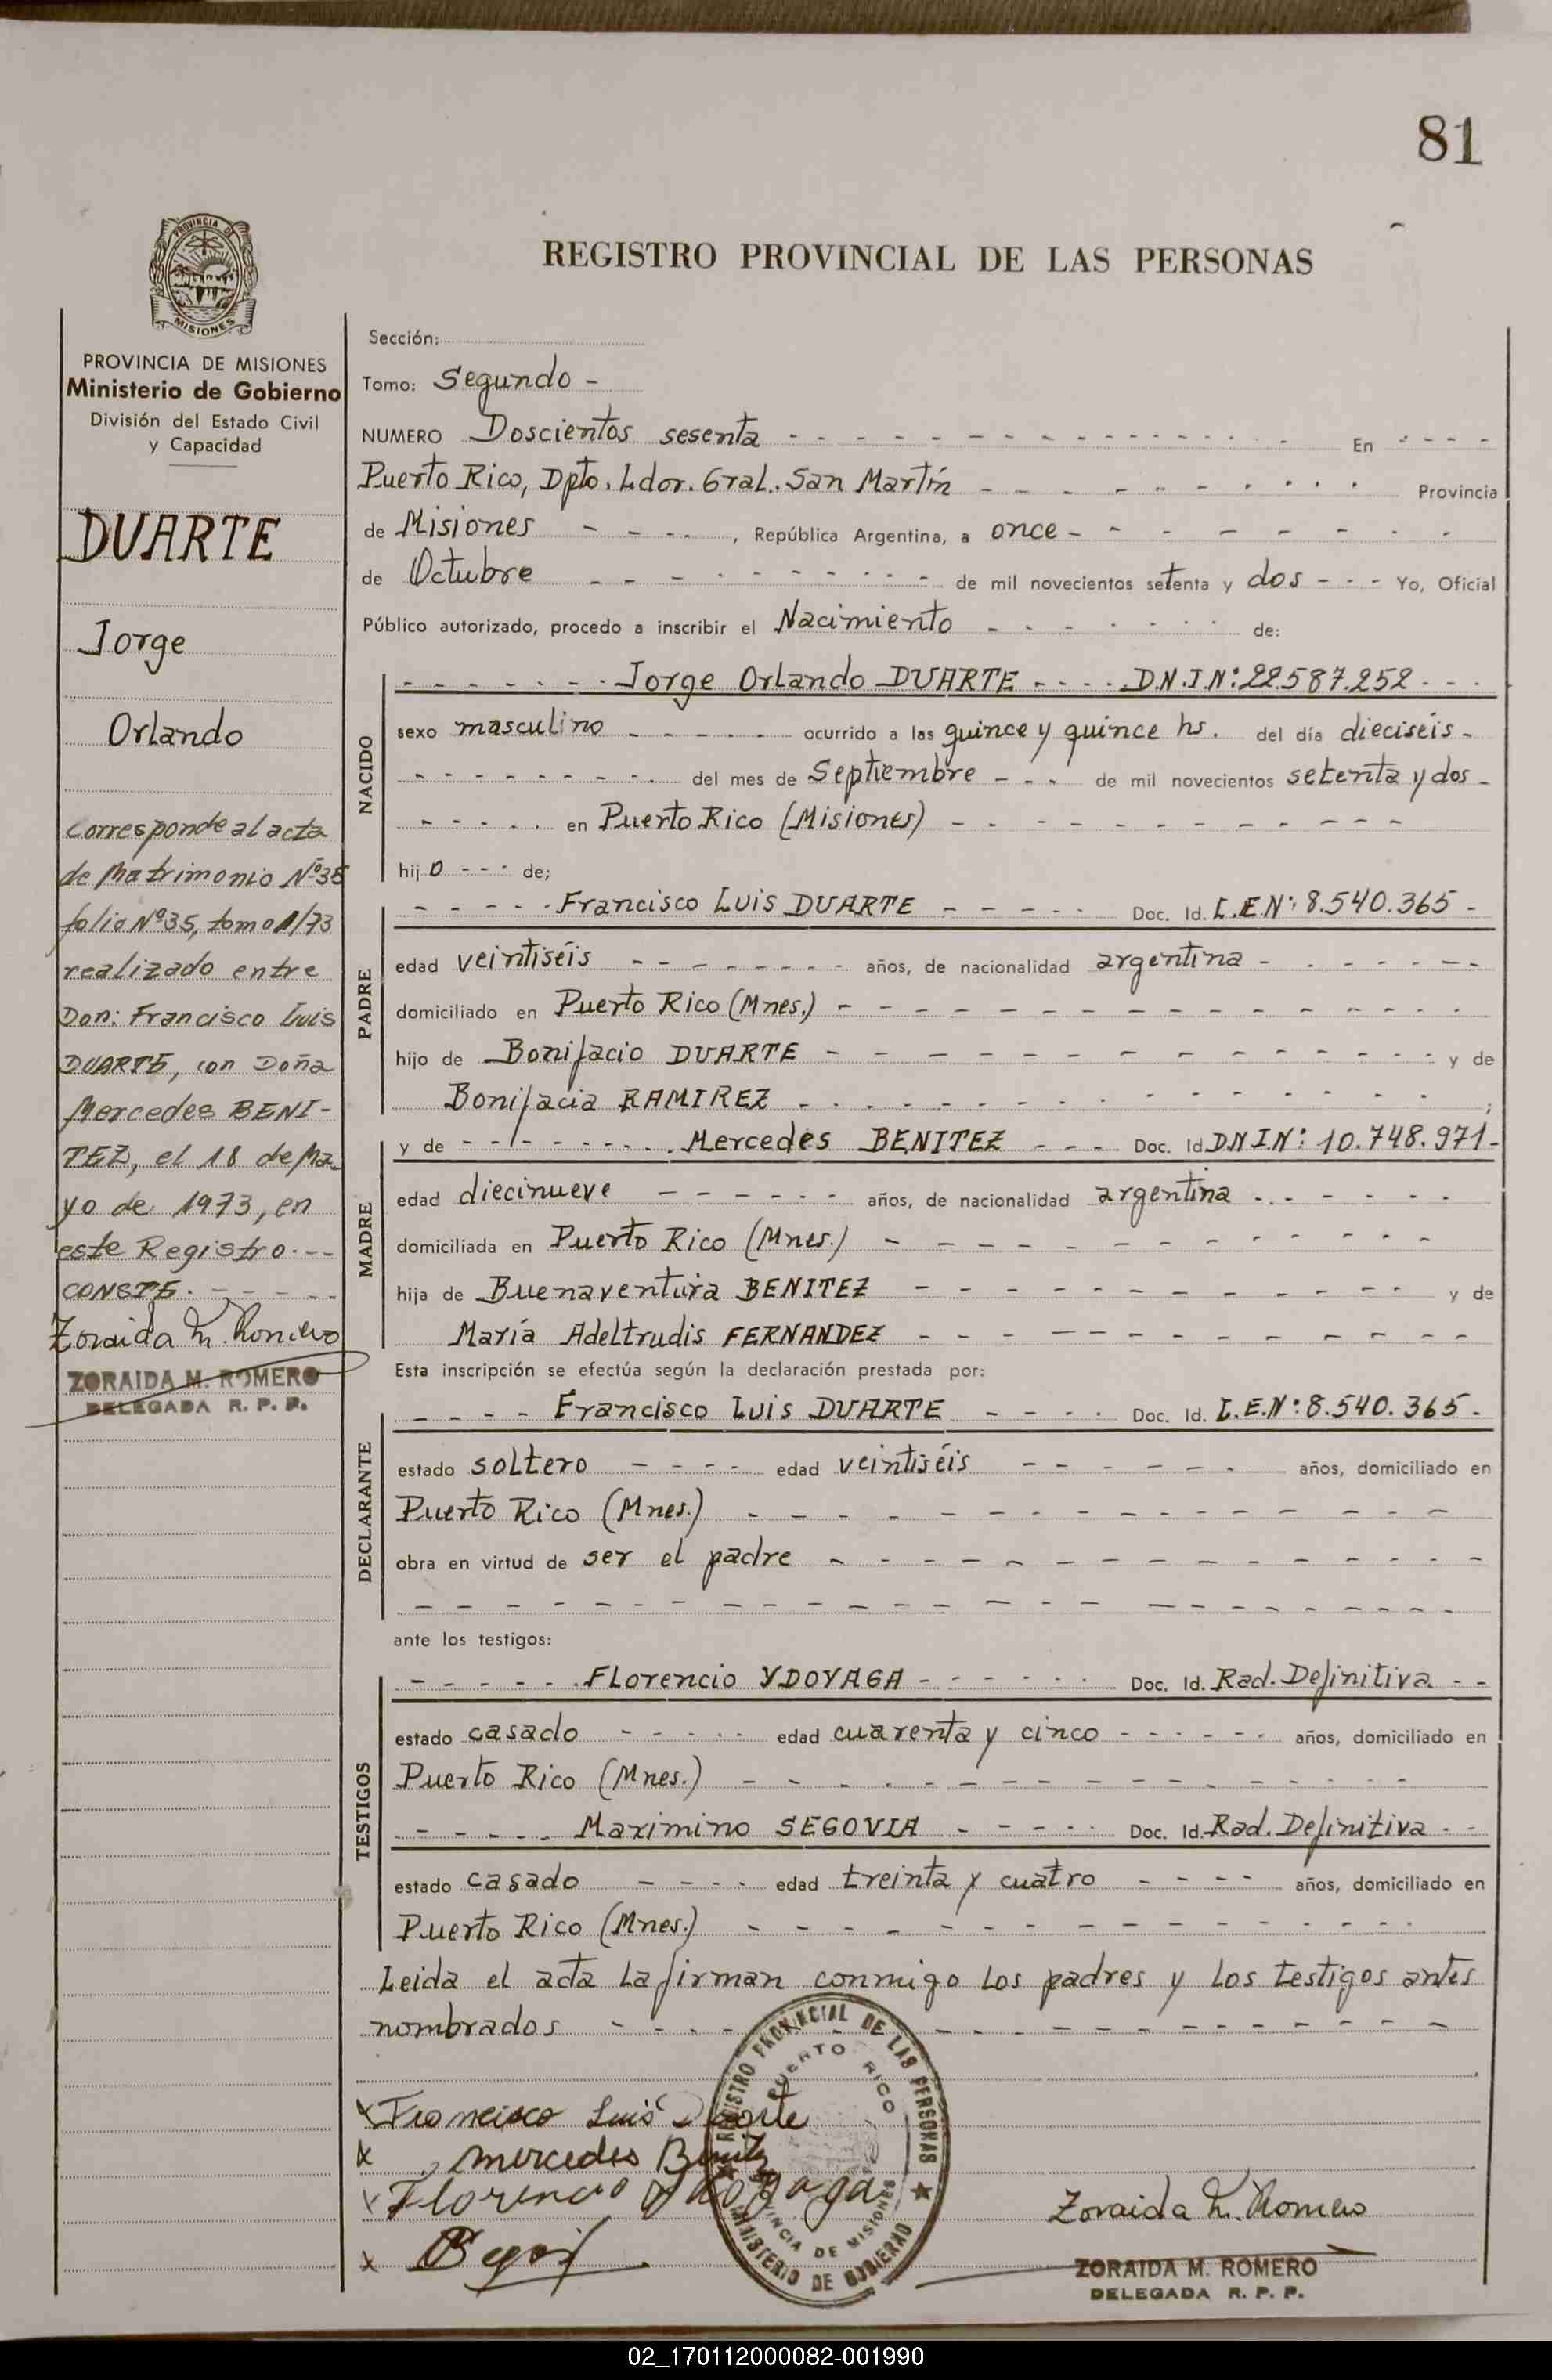 81
PROVINCIA DE
MISIONES
REGISTRO PROVINCIAL DE LAS PERSONAS
PROVINCIA DE MISIONES
Ministerio de Gobierno
División del Estado Civil
y Capacidad
DUARTE
Jorge
Orlando
Corresponde al acta
de Matrimonio Nº 35
folio Nº 35, tomo 1/73
realizado entre
Don: Francisco Luis
DUARTE, con Doña
Mercedes BENI-
TEZ, el 18 de Ma-
yo de 1973, en
este Registro.--
CONSTE. - - - - -
Zoraida M. Romero
ZORAIDA M. ROMERO
DELEGADA R. P. P.
Sección:
Tomo: Segundo -
NUMERO Doscientos sesenta - - - En - - - -
Puerto Rico, Dpto. Ldor. Gral. San Martín - - - Provincia
de Misiones - - - , República Argentina, a once - - -
de Octubre - - - de mil novecientos setenta y dos - - - Yo, Oficial
Público autorizado, procedo a inscribir el Nacimiento - - - de:
NACIDO
- - - Jorge Orlando DUARTE - - - D.N.I Nº: 22.587.252 - - -
sexo masculino - - - ocurrido a las quince y quince hs. del día dieciseis -
- - - del mes de Septiembre - - - de mil novecientos setenta y dos -
- - - en Puerto Rico (Misiones) - - -
hijo - - - de;
PADRE
- - - Francisco Luis DUARTE - - - Doc. Id. L.E.Nº: 8.540.365 -
edad veintiséis - - - años, de nacionalidad argentina - - -
domiciliado en Puerto Rico (Mnes.) - - -
hijo de Bonifacio DUARTE - - - y de
Bonifacia RAMIREZ - - - ;
MADRE
y de - - - Mercedes BENITEZ - - - Doc. Id DNIN: 10.748.971 -
edad diecinueve - - - años, de nacionalidad argentina - - -
domiciliada en Puerto Rico (Mnes.) - - -
hija de Buenaventura BENITEZ - - - y de
María Adeltrudis FERNANDEZ - - -
Esta inscripción se efectúa según la declaración prestada por:
DECLARANTE
- - - - Francisco Luis DUARTE - - - - Doc. Id. L.E.Nº: 8.540.365 -
estado soltero - - - - edad veintiséis - - - años, domiciliado en
Puerto Rico (Mnes.) - - -
obra en virtud de ser el padre - - -
- - -
ante los testigos:
TESTIGOS
- - - Florencio YDOYAGA - - - Doc. Id. Rad. Definitiva - -
estado casado - - - edad cuarenta y cinco - - - años, domiciliado en
Puerto Rico (Mnes.) - - -
- - - Maximino SEGOVIA - - - Doc. Id. Rad. Definitiva - -
estado casado - - - - edad treinta y cuatro - - - - años, domiciliado en
Puerto Rico (Mnes.) - - -
Leida el acta la firman conmigo los padres y los testigos antes
nombrados - - -
REGISTRO PROVINCIAL DE LAS PERSONAS
PUERTO RICO
PROVINCIA DE MISIONES
MINISTERIO DE GOBIERNO
x Francisco Luis Duarte
x Mercedes Benitez
x Florencio Ydoyaga
x
Zoraida M. Romero
ZORAIDA M. ROMERO
DELEGADA R. P. P.
02_170112000082-001990